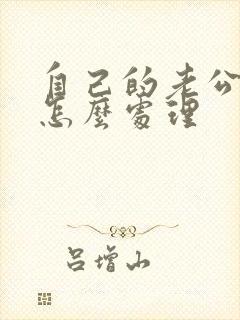 自己的老公
怎麼處理
呂增山